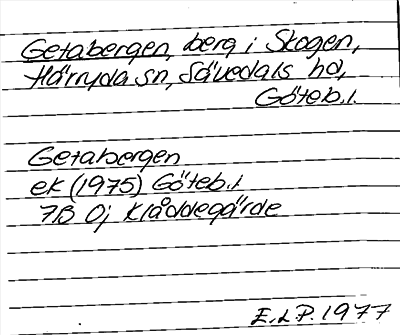 Getabergen, berg i Skogen,
Härryda sn, Sävedals hd,
Göteb. l.
Getabergen
ek (1975) Göteb. l
7B 0j Klåddegärde
E.L.P. 1977